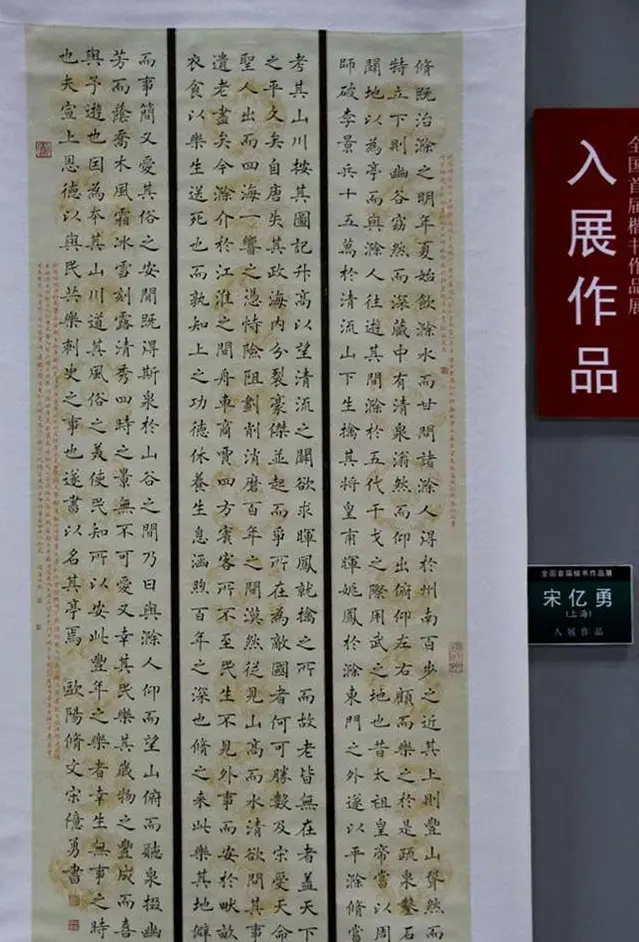 脩既治滁之明年夏始飲滁水而甘問諸滁人得於州南百步之近其上則豐山聳然而
特立下則幽谷窈然而深藏中有清泉滃然而仰出俯仰左右顧而樂之於是疏泉鑿石
闢地以為亭而與滁人往遊其間滁於五代干戈之際用武之地也昔太祖皇帝嘗以周
師破李景兵十五萬於清流山下生擒其將皇甫暉姚鳳於滁東門之外遂以平滁脩嘗
考其山川按其圖記升高以望清流之關欲求暉鳳就擒之所而故老皆無在者蓋天下
之平久矣自唐失其政海內分裂豪傑並起而爭所在為敵國者何可勝數及宋受天命
聖人出而四海一嚮之憑恃險阻剗削消磨百年之間漠然徒見山高而水清欲問其事
遺老盡矣今滁介於江淮之間舟車商賈四方賓客所不至民生不見外事而安於畎畝
衣食以樂生送死也而孰知上之功德休養生息涵煦百年之深也脩之來此樂其地僻
而事簡又愛其俗之安閒既得斯泉於山谷之間乃日與滁人仰而望山俯而聽泉掇幽
芳而蔭喬木風霜冰雪刻露清秀四時之景無不可愛又幸其民樂其歲物之豐成而喜
與予遊也因為本其山川道其風俗之美使民知所以安此豐年之樂者幸生無事之時
也夫宣上恩德以與民共樂刺史之事也遂書以名其亭焉 歐陽脩文宋億勇書
全国首届楷书作品展
入展作品
全国首届楷书作品展
宋亿勇
(上海)
入展作品